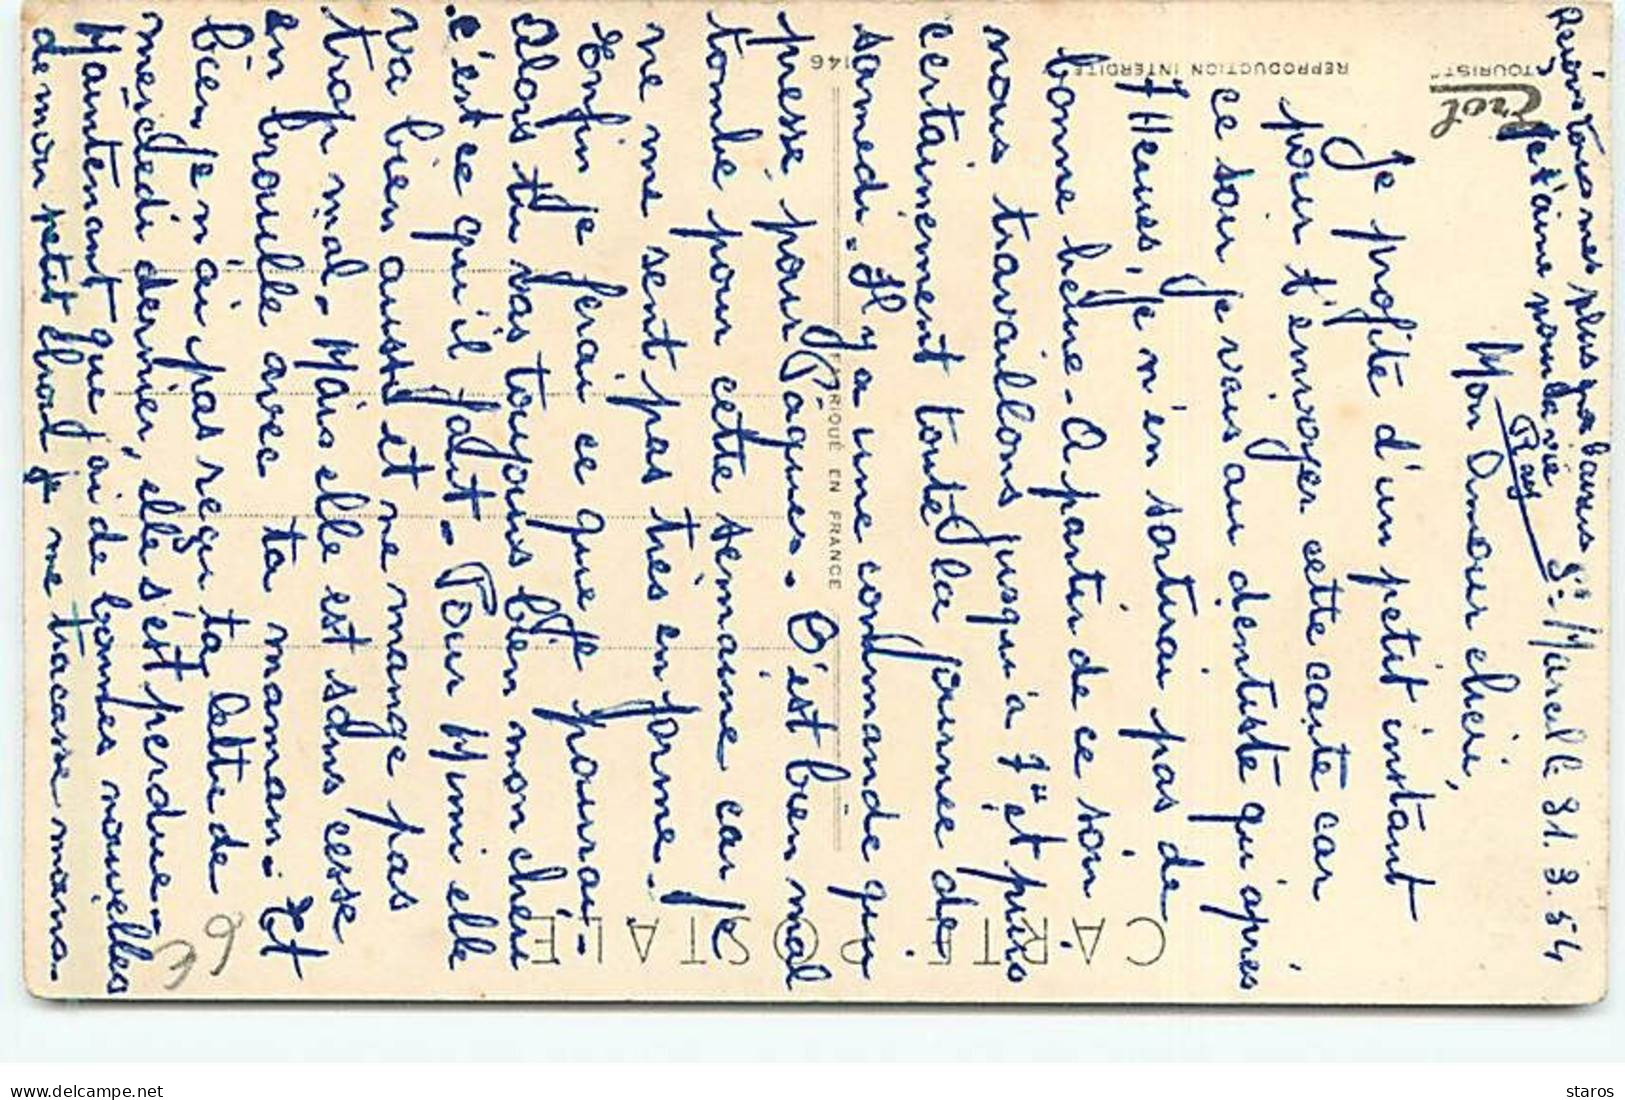 St. Marcel le 31.3.54
Mon Amour chéri,
Je profite d'un petit instant
pour t'envoyer cette carte car
ce soir je vais au dentiste qu'après
7 Heures, je n'en sortirai pas de
bonne heure. A partir de ce soir
nous travaillons jusqu'à 7H et puis
certainement toute la journée de
samedi. Il y a une commande qui
presse pour Pâques. C'est bien mal
tombé pour cette semaine car je
ne me sent pas très en forme.
Enfin je ferai ce que je pourrai.
Alors tu vas toujours bien mon chéri
c'est ce qu'il faut. Pour Mimi elle
va bien aussi et ne mange pas
trop mal. Mais elle est sans cesse
en brouille avec ta maman. Et
bien je n'ai pas reçu ta lettre de
mercredi dernier, elle s'est perdue.
Maintenant que j'ai de bonnes nouvelles
de mon petit chou je me tracasse moins.
Reçois tous mes plus gros baisers
Je t'aime pour la vie
CARTE POSTALE
FABRIQUÉ EN FRANCE
146
REPRODUCTION INTERDITE
"TOURIST"
6€
staros
delcampe.net